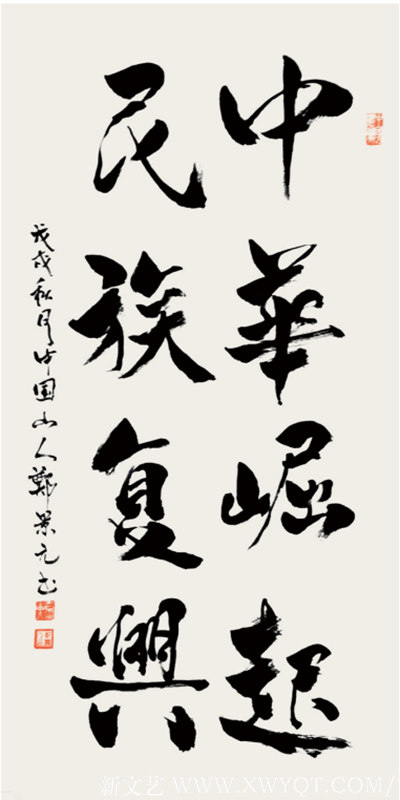 中華崛起
民族复興
戊戌秋月中国山人鄭景元书
新文艺 WWW.XWYQT.COM/